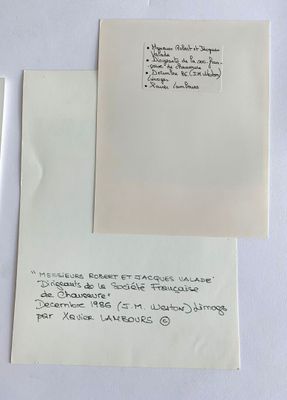 • Messieurs Robert et Jacques
Valade
• Dirigeants de la soc. fran-
çaise de chaussure
• Décembre 86 (J.M Weston)
Limoges
• Xavier Lambours
"MESSIEURS ROBERT ET JACQUES VALADE"
"Dirigeants de la Société Française
de Chaussure"
Decembre 1986 (J.M. Weston) Limoges
par Xavier LAMBOURS ©